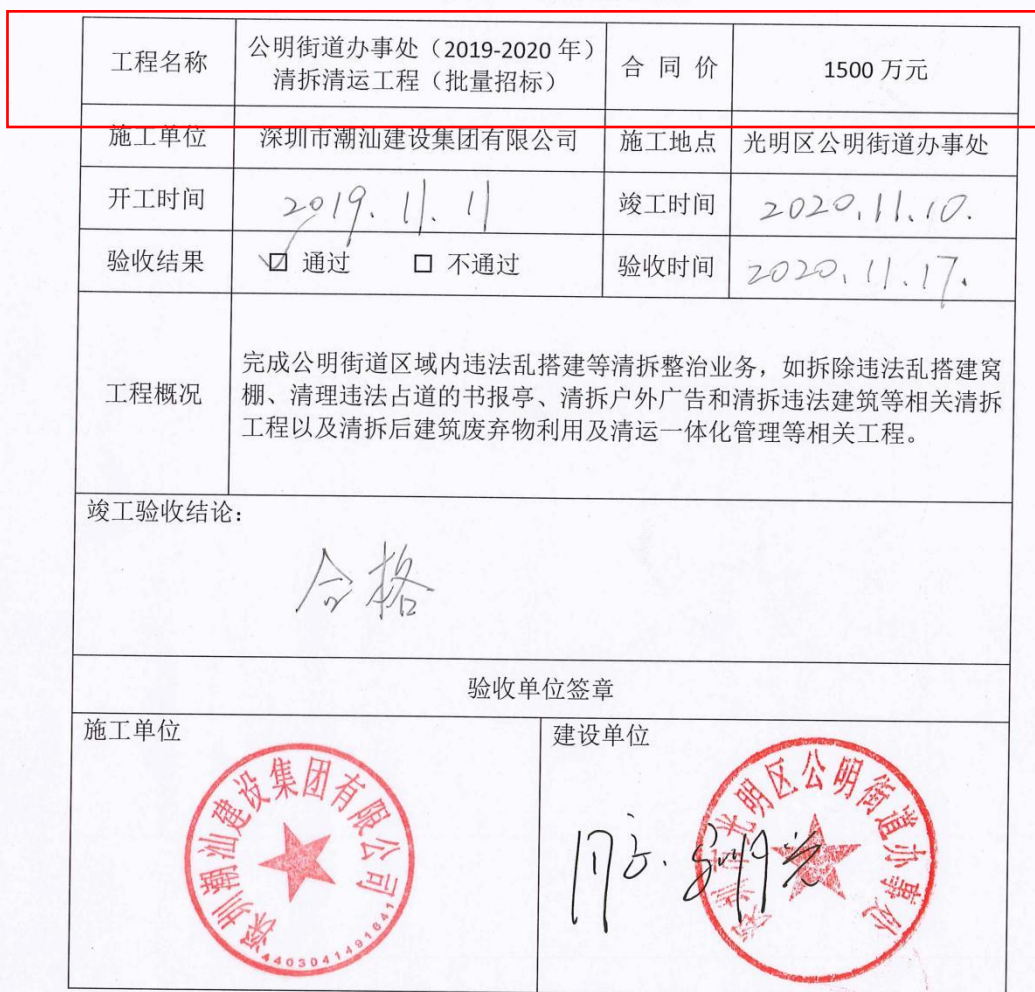 工程名称
公明街道办事处（2019-2020 年）
清拆清运工程（批量招标）
合 同 价
1500 万元
施工单位
深圳市潮汕建设集团有限公司
施工地点
光明区公明街道办事处
开工时间
2019.11.11
竣工时间
2020.11.10.
验收结果
☑ 通过 □ 不通过
验收时间
2020.11.17.
工程概况
完成公明街道区域内违法乱搭建等清拆整治业务，如拆除违法乱搭建窝
棚、清理违法占道的书报亭、清拆户外广告和清拆违法建筑等相关清拆
工程以及清拆后建筑废弃物利用及清运一体化管理等相关工程。
竣工验收结论：
合格
验收单位签章
施工单位
深圳潮汕建设集团有限公司
建设单位
同意.
深圳市光明区公明街道办事处